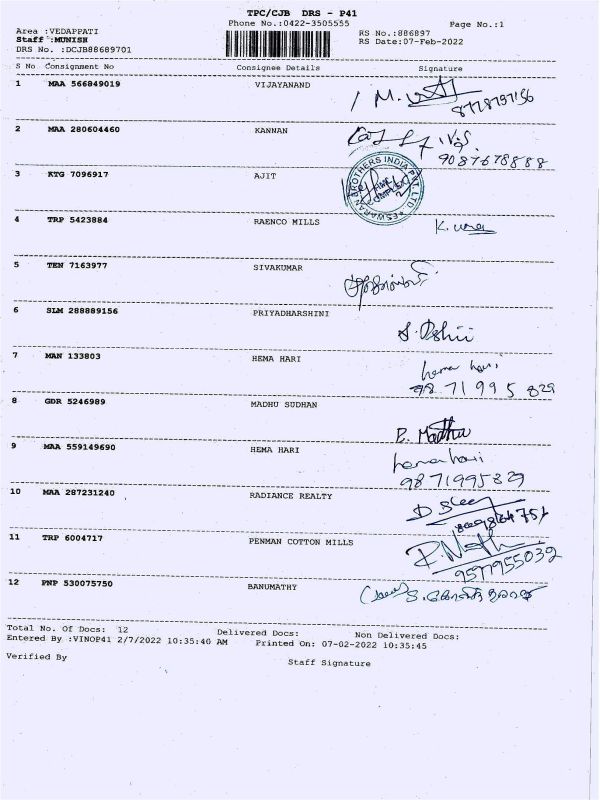 TPC/CJB DRS - P41
Phone No.:0422-3505555
Page No.:1
Area :VEDAPPATI
Staff :MUNISH
DRS No. :DCJB88689701
RS No.:886897
RS Date:07-Feb-2022
S No Consignment No Consignee Details Signature
1 MAA 566849019 VIJAYANAND
2 MAA 280604460 KANNAN
9087678888
3 KTG 7096917 AJIT
ESWARAN BROTHERS INDIA PVT. LTD
4 TRP 5423884 RAENCO MILLS
5 TEN 7163977 SIVAKUMAR
6 SLM 288889156 PRIYADHARSHINI
7 MAN 133803 HEMA HARI
hema hari
9871995829
8 GDR 5246989 MADHU SUDHAN
9 MAA 559149690 HEMA HARI
hema hari
9871995829
10 MAA 287231240 RADIANCE REALTY
11 TRP 6004717 PENMAN COTTON MILLS
9597955032
12 PNP 530075750 BANUMATHY
Total No. Of Docs: 12 Delivered Docs: Non Delivered Docs:
Entered By :VINOP41 2/7/2022 10:35:40 AM Printed On: 07-02-2022 10:35:45
Verified By Staff Signature